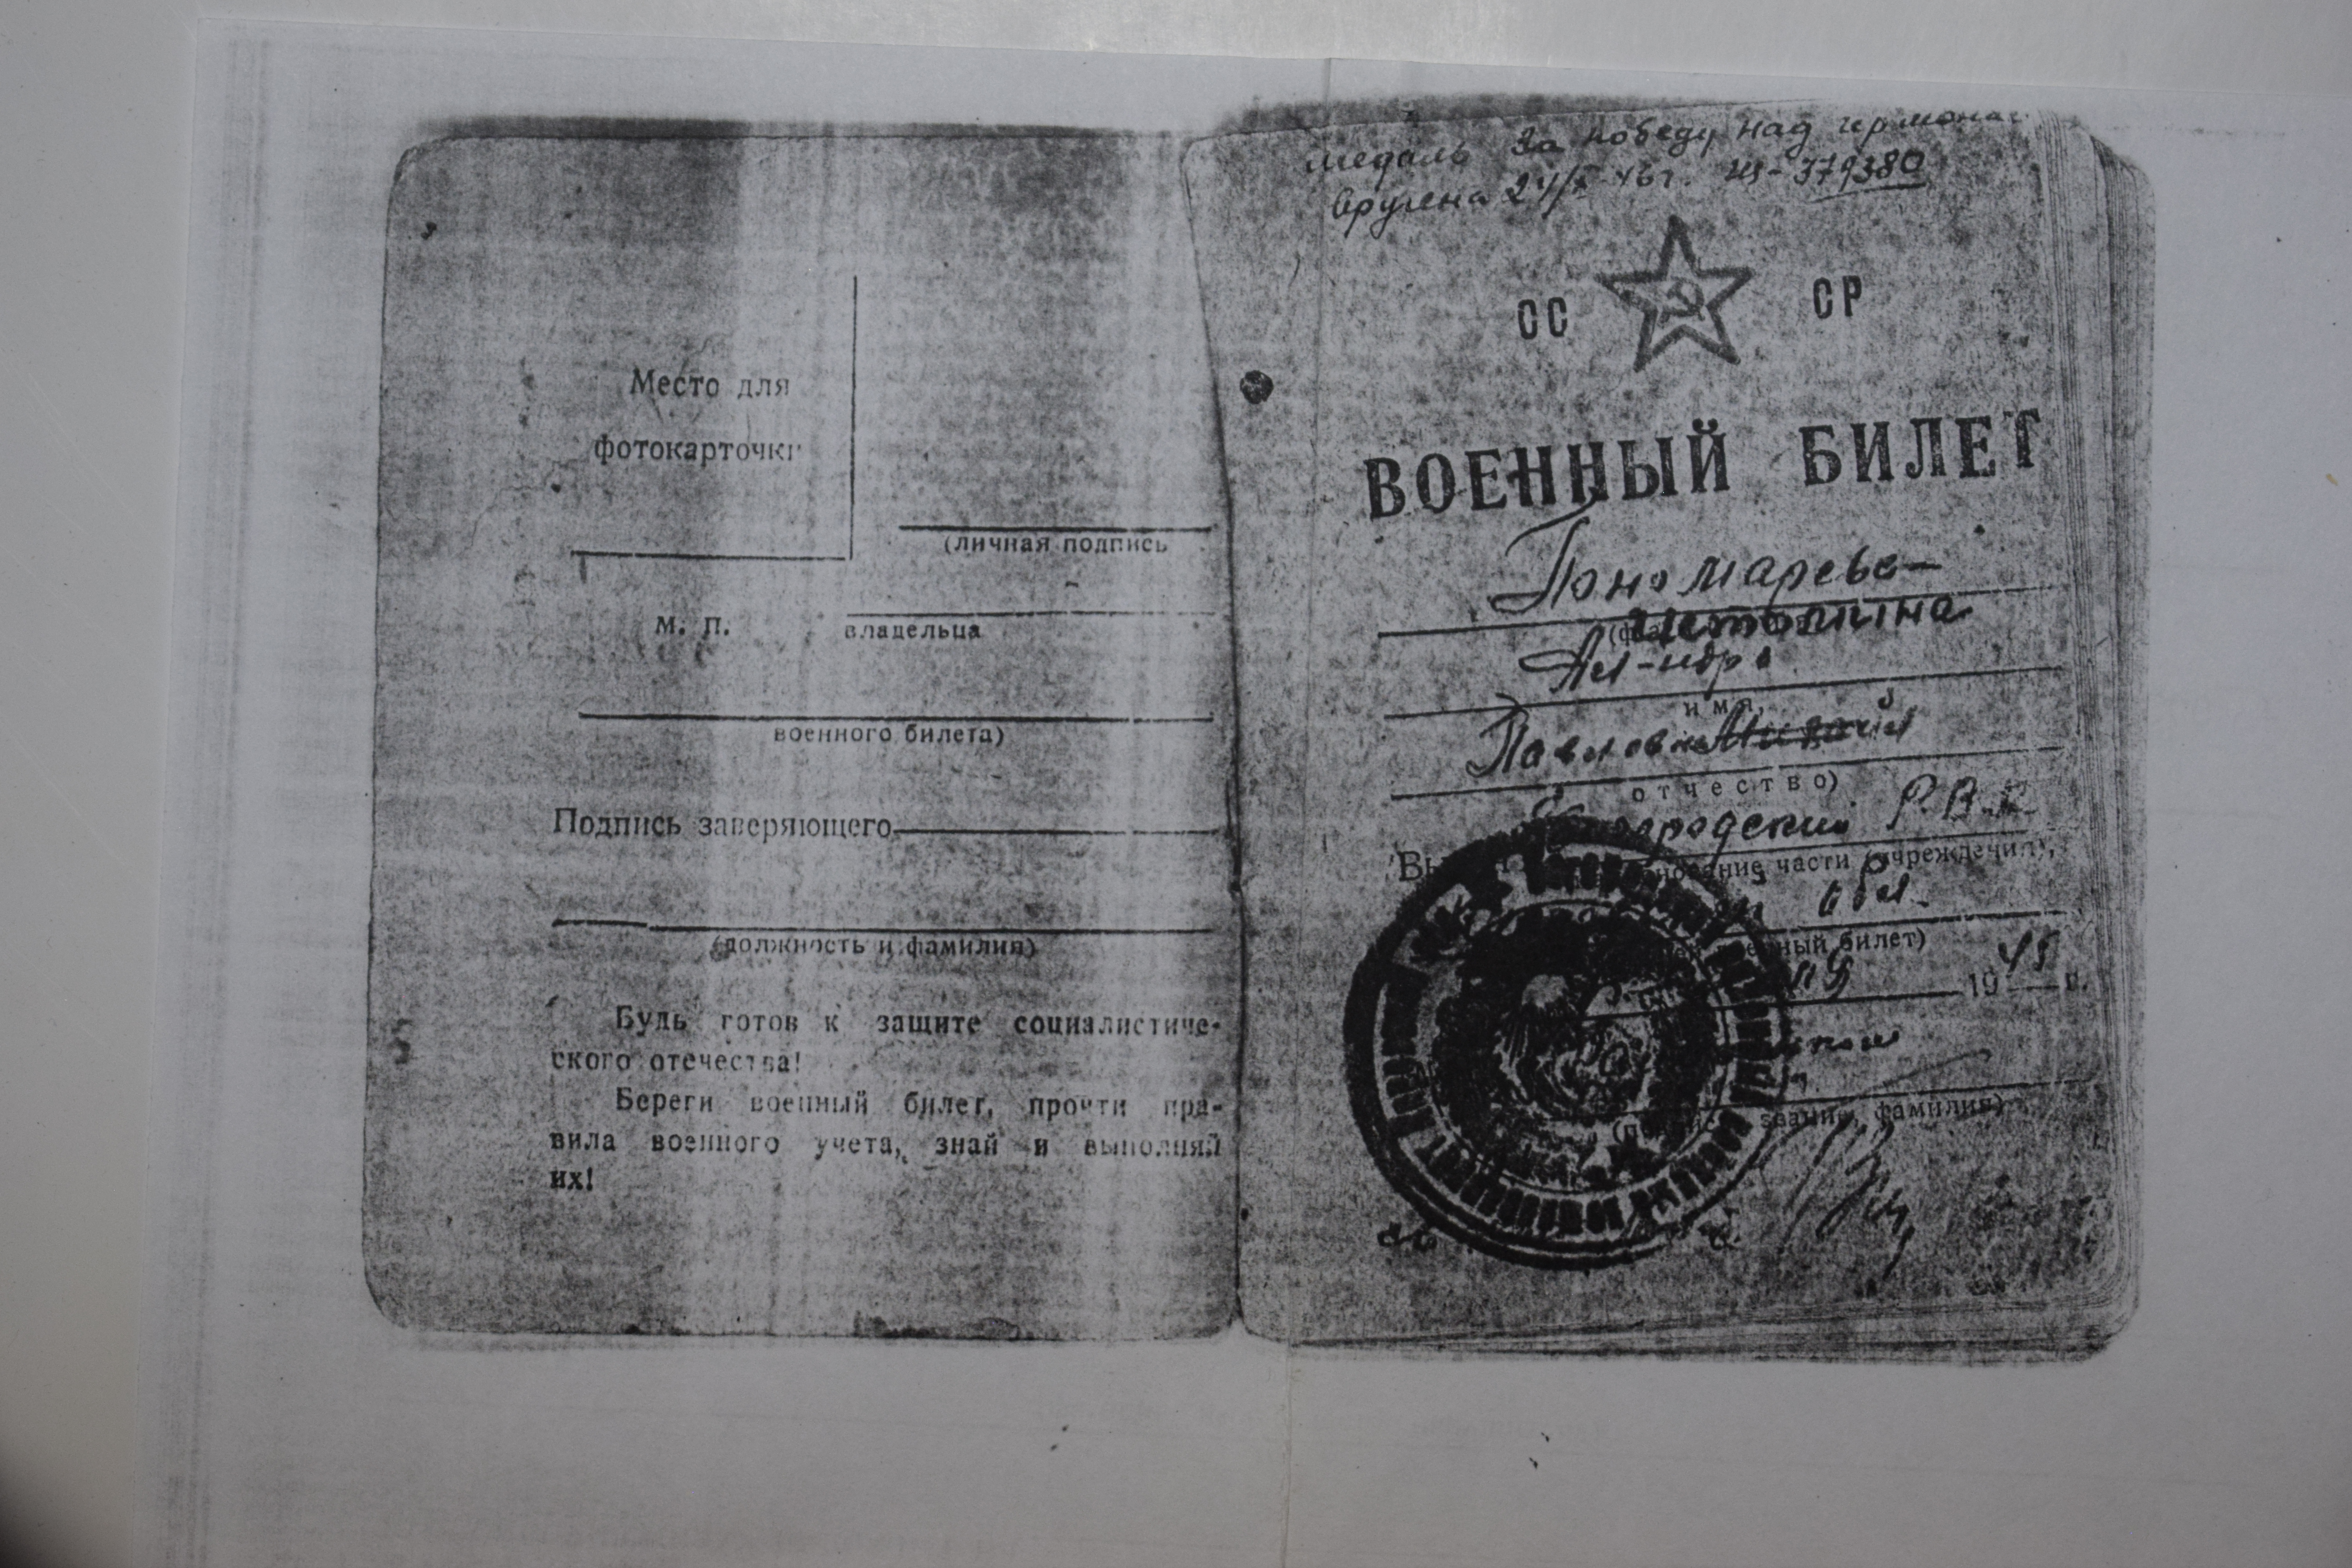 Место для
фотокарточки
(личная подпись
м. п.
владельца
военного билета)
Подпись заверяющего
(должность и фамилия)
Будь готов к защите социалистиче-
ского отечества!
Береги военный билет, прочти пра-
вила военного учета, знай и выполняй
их!
медаль За победу над
вручена 46 г. 379380
СС СР
ВОЕННЫЙ БИЛЕТ
Пономарева-
Ал-ндра
имя,
Павловна
отчество)
Р.В.К.
части (учреждения),
обл.
билет)
1945 г.
звание, фамилия)